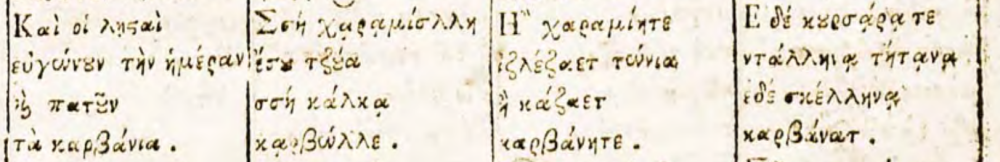 Καὶ οἱ λῃϛαὶ
εὐγώνȣν τὴν ἡμέραν
ϗ πατȣ͂ν
τὰ καρβάνια .
Σσὴ χαρα̣μίσλλη
ἔσȣ τζύα
σσὴ κάλκα̣
κα̣ρβώλλε .
Ἢ χαραμίητε
ἰζλέζαετ τώνια
ἢ κάζαετ
καρβάνητε .
Ε δέ κȣρσάρα̣τε
ντάλληνα̣ τήτα̣να̣
ἐδὲ σκέλληνα̣
καρβάνατ .